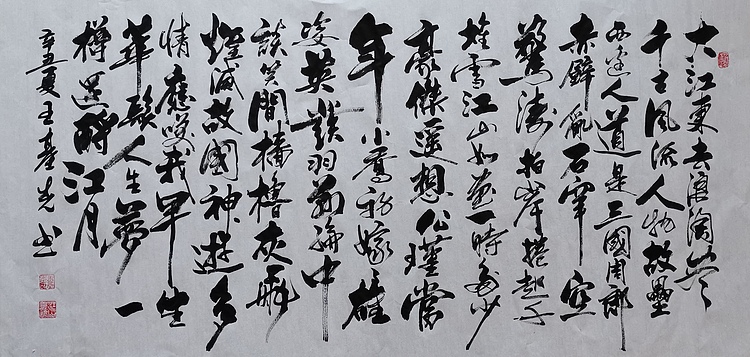 大江東去浪淘盡
千古風流人物故壘
西邊人道是三國周郎
赤壁亂石穿空
驚濤拍岸捲起千
堆雪江山如畫一時多少
豪傑遥想公瑾當
年小喬初嫁雄
姿英發羽扇綸中
談笑間檣櫓灰飛
煙滅故國神遊多
情應笑我早生
華髮人生夢一
樽還酹江月
辛丑夏王基先书